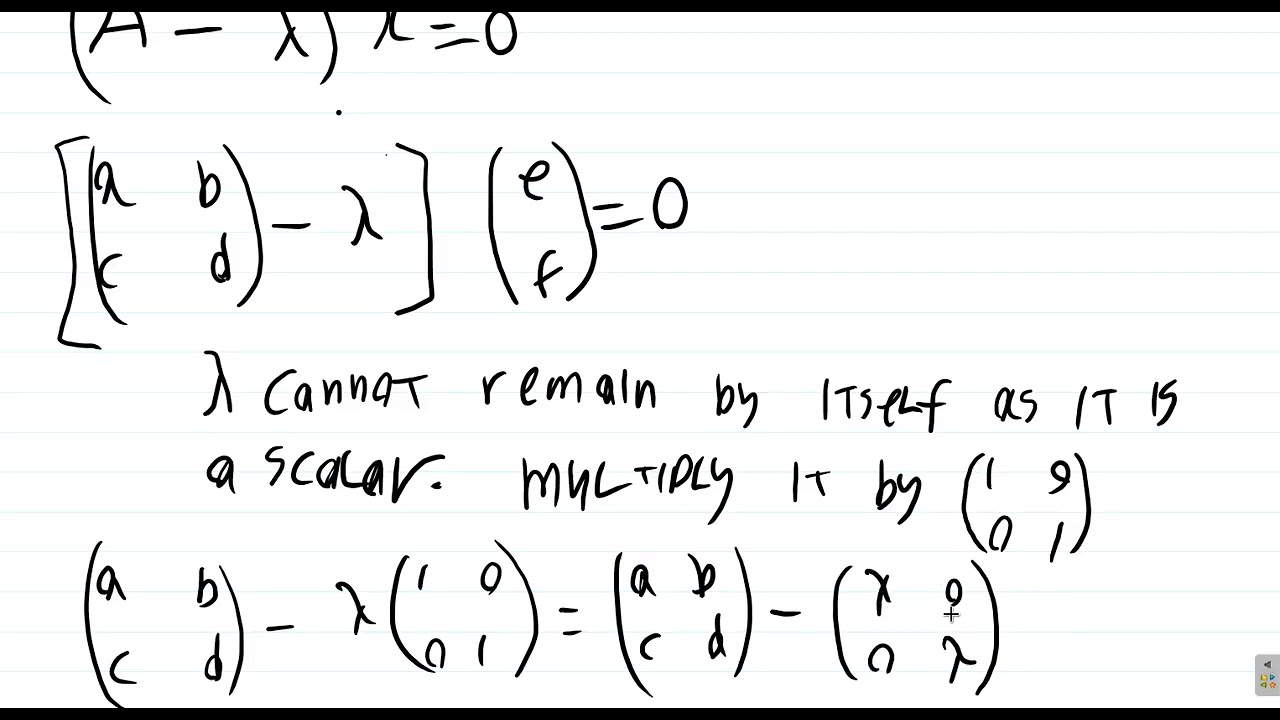 (A - λ) x = 0
[(a b
c d) - λ] (e
f) = 0
λ cannot remain by itself as it is
a scalar. multiply it by (1 0
0 1)
(a b
c d) - λ (1 0
0 1) = (a b
c d) - (λ 0
0 λ)